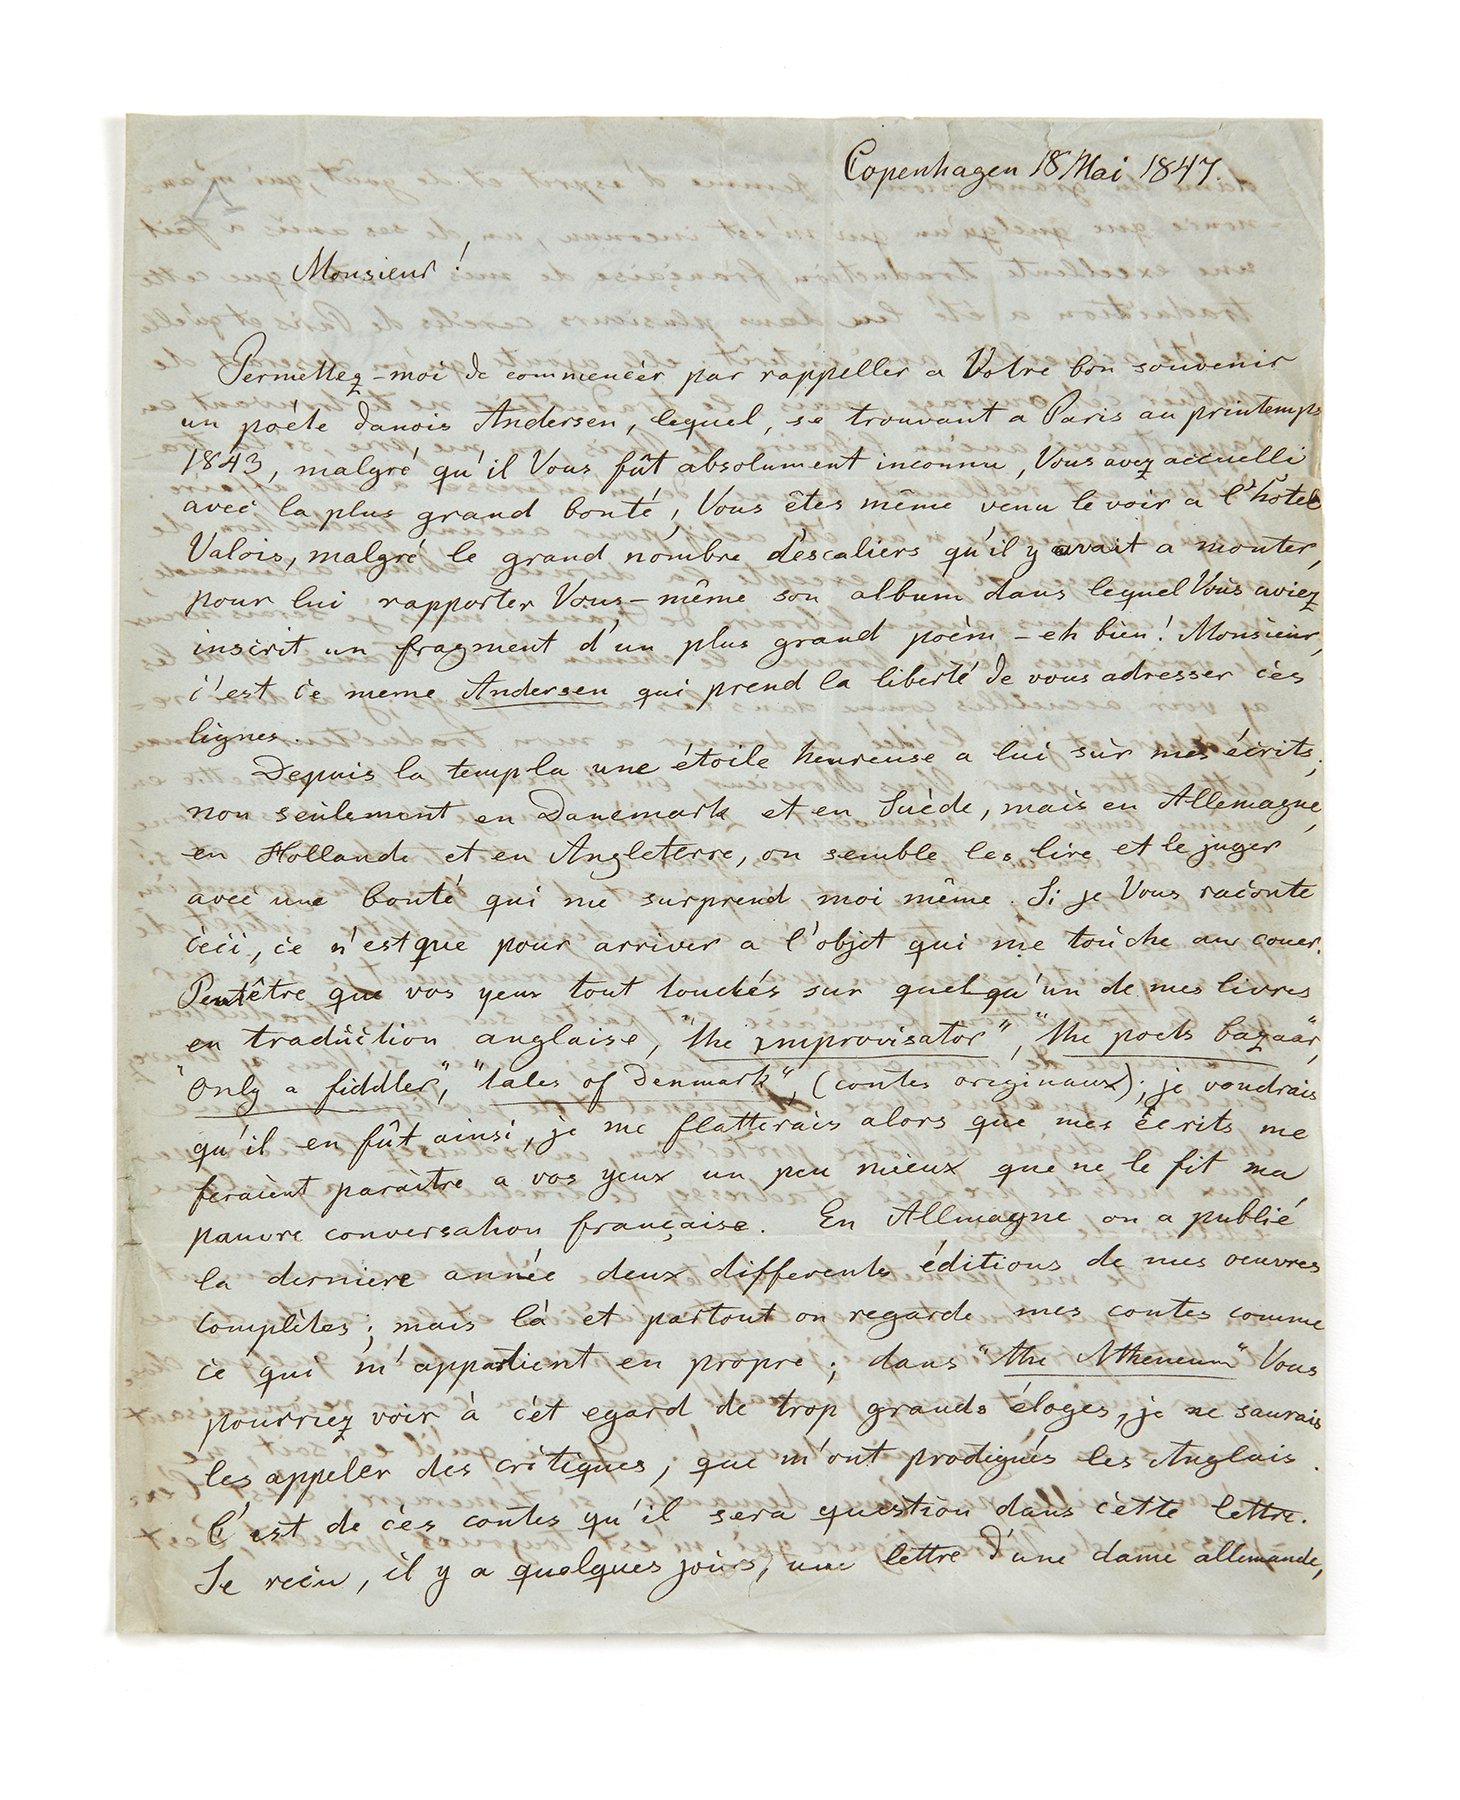 Copenhagen 18 Mai 1847.
Monsieur!
Permettez-moi de commencér par rappeller a Votre bon souvenir
un poéte danois Andersen, lequel, se trouvant a Paris au printemps
1843, malgré qu'il Vous fût absolument inconnu, Vous avez accuelli
avec la plus grand bonté, Vous êtes même venu le voir a l'hotel
Valois, malgré le grand nombre d'escaliers qu'il y avait a monter,
pour lui rapporter Vous-même son album dans lequel Vous aviez
inscrit un fragment d'un plus grand poèm - eh bien! Monsieur,
c'est ce meme Andersen qui prend la liberté de vous adresser ces
lignes.
Depuis la temp la une étoile heureuse a lui sur mes écrits;
non seulement en Danemark et en Suède, mais en Allemagne,
en Hollande et en Angleterre, on semble les lire et le juger
avec une bonté qui me surprend moi même. Si je Vous raconte
ceci, ce n'est que pour arriver a l'objet qui me touche au couer.
Peutêtre que vos yeux tout touchés sur quelqu'un de mes livres
en traduction anglaise, "the improvisator", "the poets bazaar",
"only a fiddler", "tales of Denmark", (contes originaux); je voudrais
qu'il en fût ainsi, je me flatterais alors que mes écrits me
feraient paraitre a vos yeux un peu mieux que ne le fit ma
pauvre conversation française. En Allmagne on a publié
la derniere année deux differents éditions de mes oeuvres
complètes; mais là et partout on regarde mes contes comme
ce qui m'appartient en propre; dans "the Atheneum" Vous
pourriez voir à cét egard de trop grands éloges, je ne saurais
les appeler des critiques, que m'ont prodigués les Anglais.
C'est de ces contes qu'il sera question dans cette lettre.
Je recu, il y a quelques jours, une lettre d'une dame allemande,